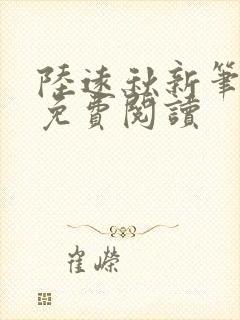 陸遠秋新筆
免費閱讀
崔嶸